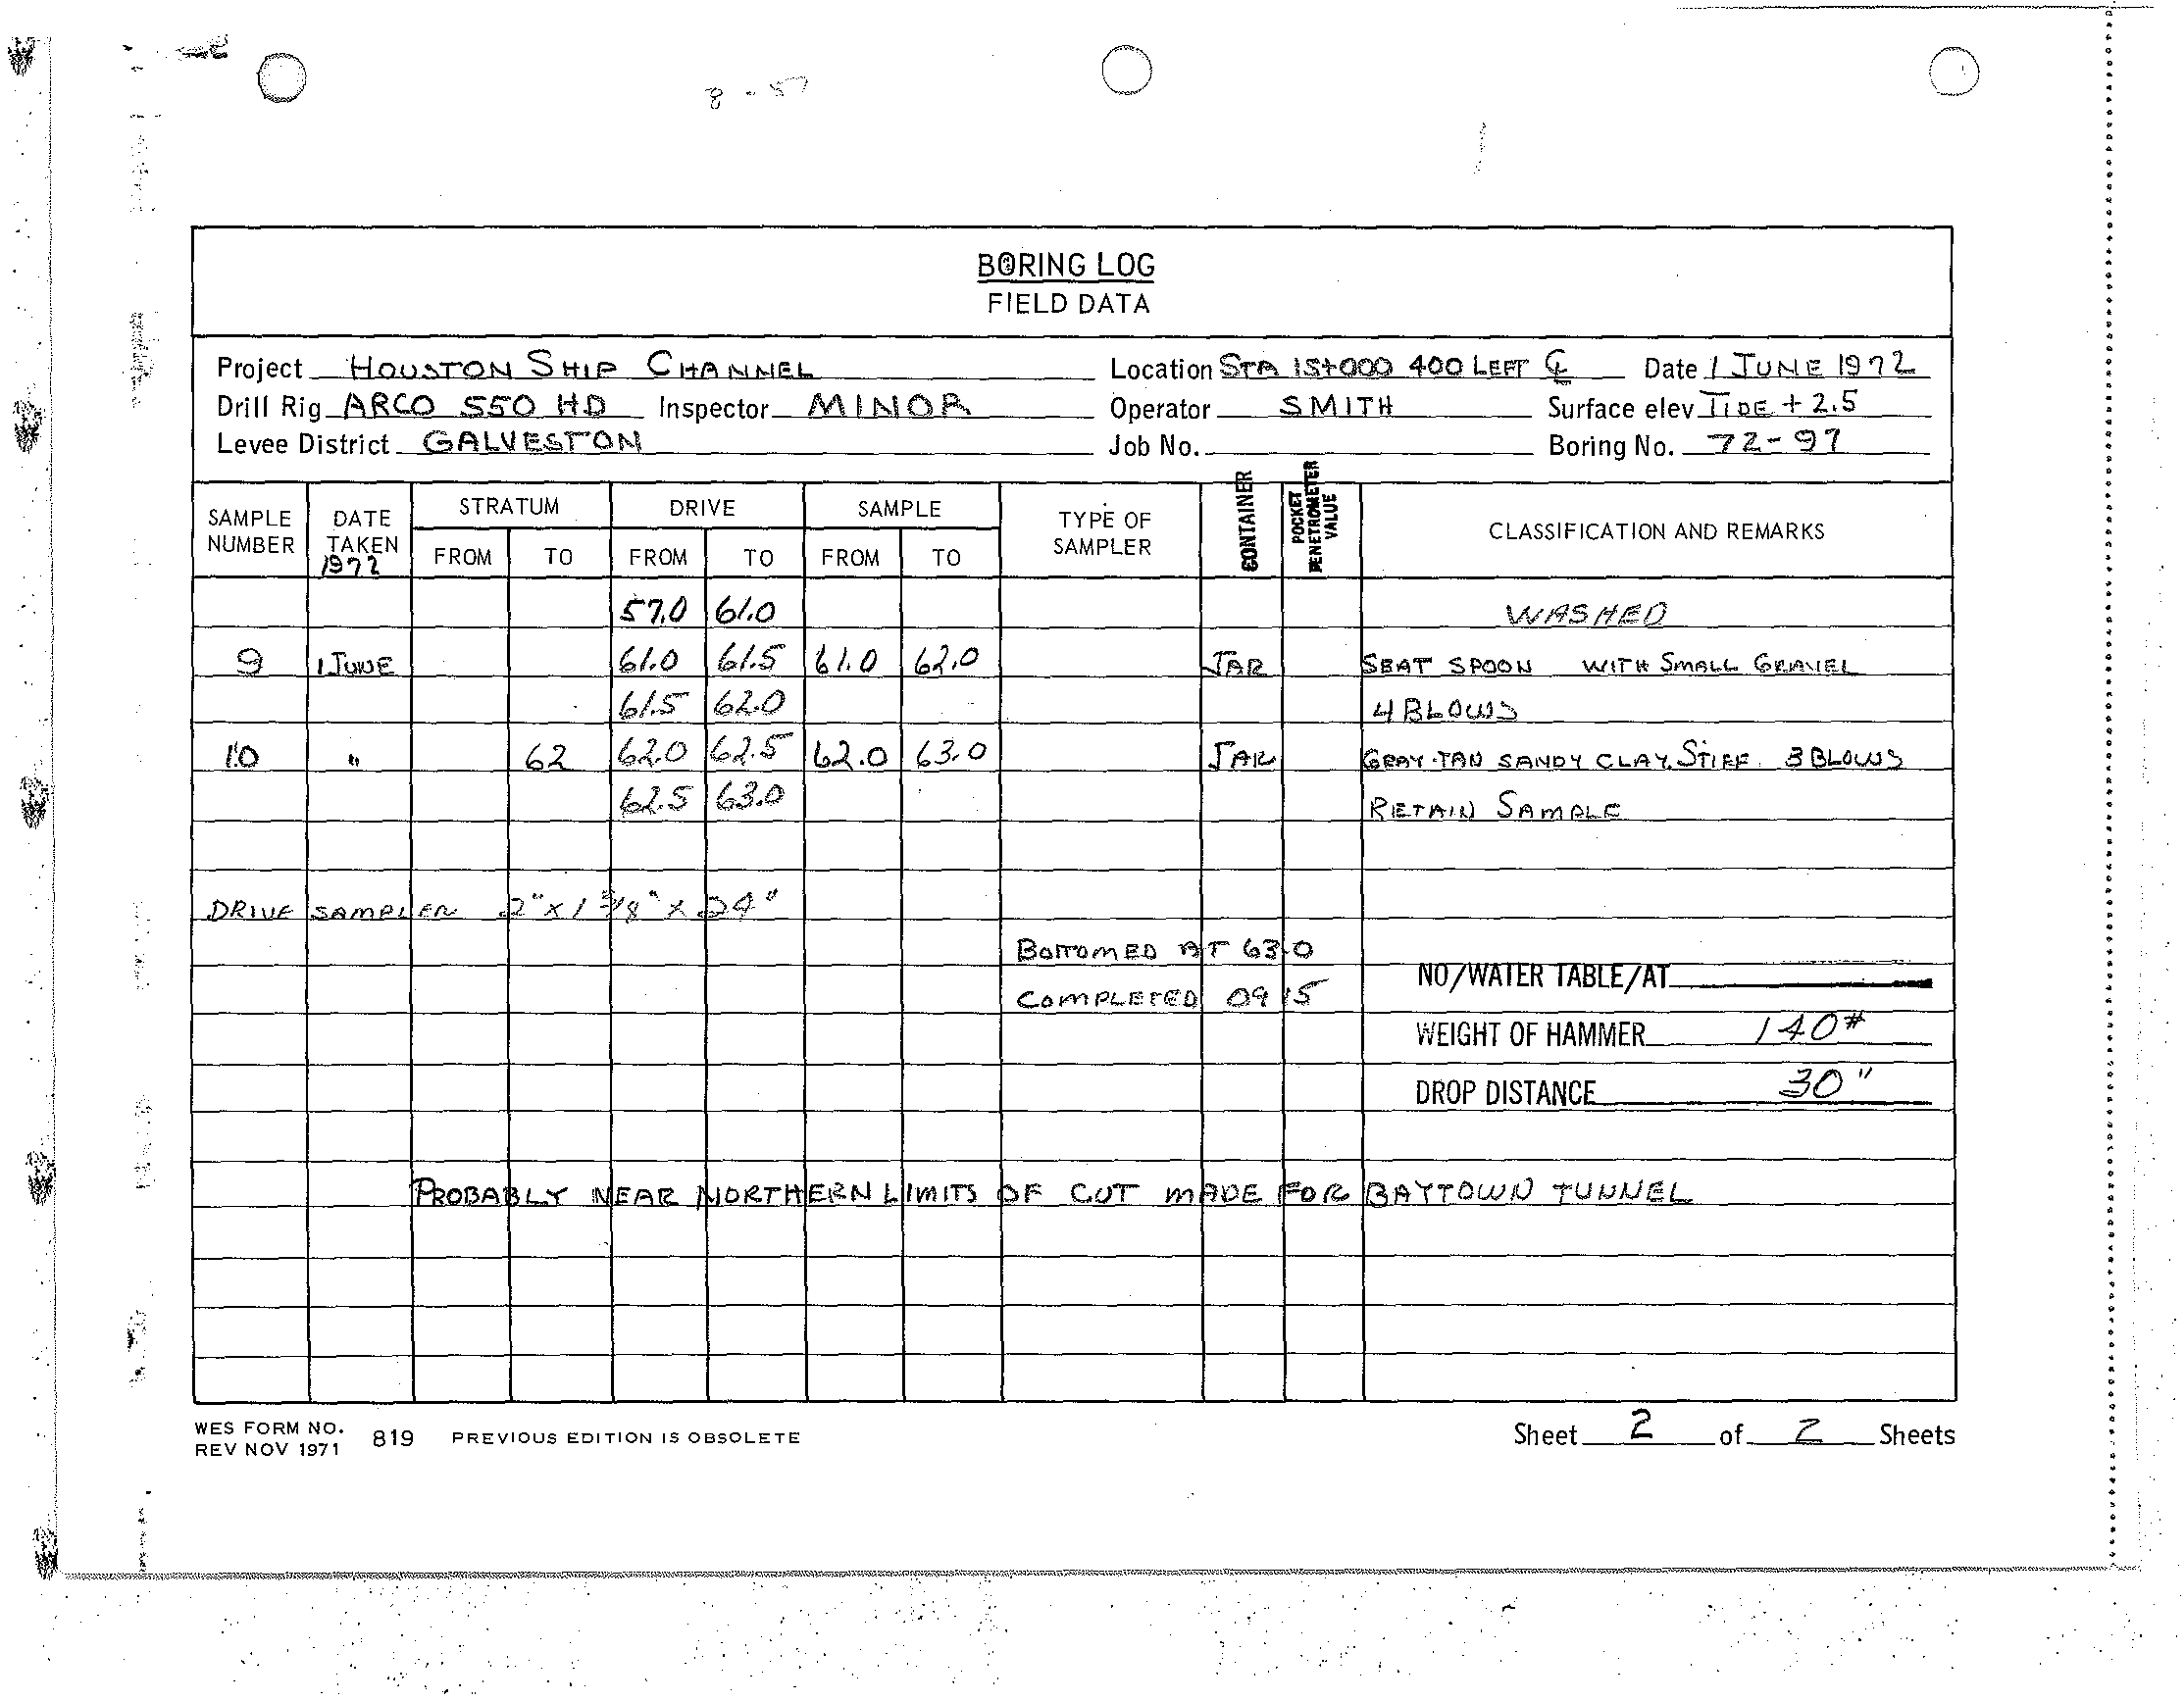 8 - 57
BORING LOG
FIELD DATA
Project HOUSTON SHIP CHANNEL Location STA 15+000 400 LEFT ℄ Date 1 JUNE 1972
Drill Rig ARCO 550 HD Inspector MINOR Operator SMITH Surface elev TIDE + 2.5
Levee District GALVESTON Job No. Boring No. 72-97
SAMPLE NUMBER DATE TAKEN 1972 STRATUM DRIVE SAMPLE TYPE OF SAMPLER CONTAINER POCKET PENETROMETER VALUE CLASSIFICATION AND REMARKS
FROM TO FROM TO FROM TO
57.0 61.0 WASHED
9 1 JUNE 61.0 61.5 61.0 62.0 JAR SEAT SPOON WITH SMALL GRAVEL
61.5 62.0 4 BLOWS
10 " 62 62.0 62.5 62.0 63.0 JAR GRAY-TAN SANDY CLAY, STIFF. 3 BLOWS
62.5 63.0 RETAIN SAMPLE
DRIVE SAMPLER 2" x 1 3/8" x 24"
BOTTOMED AT 63.0
NO/WATER TABLE/AT
COMPLETED 0915
WEIGHT OF HAMMER 140#
DROP DISTANCE 30"
PROBABLY NEAR NORTHERN LIMITS OF CUT MADE FOR BAYTOWN TUNNEL
WES FORM NO. 819 PREVIOUS EDITION IS OBSOLETE
REV NOV 1971
Sheet 2 of 2 Sheets